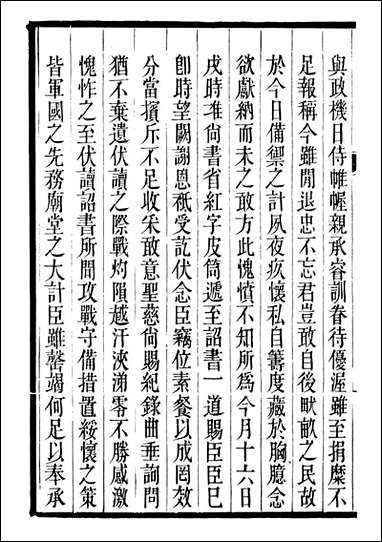 與政機日侍帷幄親承睿訓眷待優渥雖至捐糜不
足報稱今雖閒退忠不忘君豈敢自後畎畝之民故
於今日備禦之計夙夜疚懷私自籌度藏於胸臆念
欲獻納而未之敢方此愧憤不知所爲今月十六日
戌時准尚書省紅字皮筒遞至詔書一道賜臣臣已
卽時望闕謝恩祇受訖伏念臣竊位素餐以成罔效
分當擯斥不足收采敢意聖慈尚賜紀錄曲垂詢問
猶不棄遺伏讀之際戰灼隕越汗浹涕零不勝感激
愧怍之至伏讀詔書所問攻戰守備措置綏懷之策
皆軍國之先務廟堂之大計臣雖罄竭何足以奉承